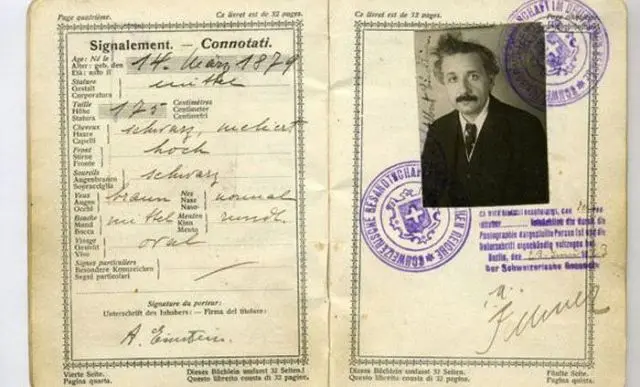 Page quatrième. Ce livret est de 32 pages.
Signalement. — Connotati.
Age: Né le
Alter: geb. den 14. März 1879
Età: nato il
Stature
Gestalt mittel
Corporatura
Taille Centimètres
Höhe 175 Centimeter
Statura Centimetri
Cheveux
Haare schwarz, meliert
Capelli
Front
Stirne hoch
Fronte
Sourcils
Augenbrauen schwarz
Sopracciglia
Yeux Nez
Augen braun Nase normal
Occhi Naso
Bouche Menton
Mund mittel Kinn rund
Bocca Mento
Visage
Gesicht oval
Viso
Signes particuliers
Besondere Kennzeichen
Segni particolari
Signature du porteur:
Unterschrift des Inhabers: — Firma del titolare:
A. Einstein.
Vierte Seite. Dieses Büchlein umfasst 32 Seiten.
Pagina quarta. Questo libretto consta di 32 pagine.
Ce livret est de 32 pages.
SCHWEIZERISCHE GESANDTSCHAFT
Photographie dargestellte Person ist und die
Unterschrift eigenhändig vollzogen hat.
Berlin, den
der Schweizerische Gesandte
Dieses Büchlein umfasst 32 Seiten. Fünfte Seite.
Questo libretto consta di 32 pagine. Pagina quinta.